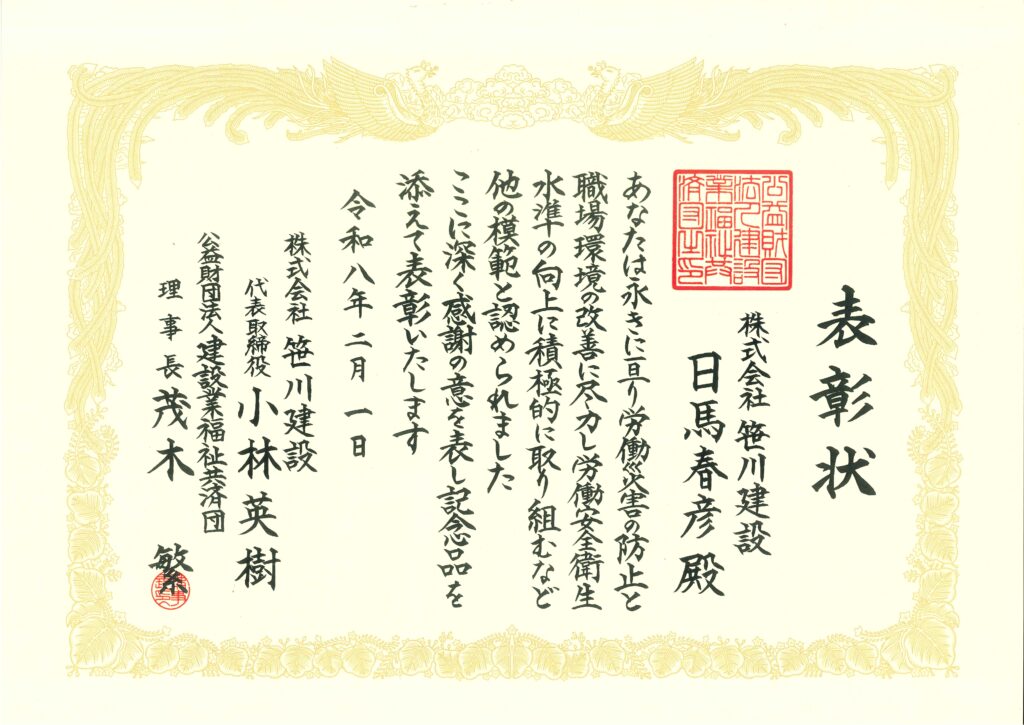 表彰状
株式会社 笹川建設
日馬春彦 殿
あなたは永きに亘り労働災害の防止と
職場環境の改善に尽力し労働安全衛生
水準の向上に積極的に取り組むなど
他の模範と認められました
ここに深く感謝の意を表し記念品を
添えて表彰いたします
令和八年二月一日
株式会社 笹川建設
代表取締役 小林英樹
公益財団法人 建設業福祉共済団
理事長 茂木 繁
公益財団
法人建設
業福祉共
済団之印